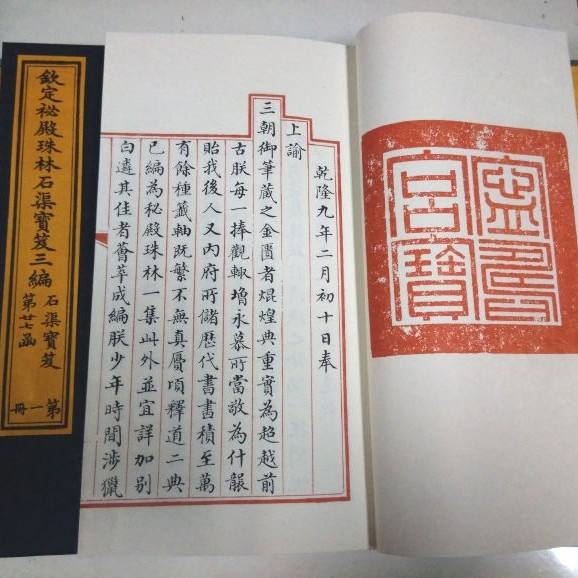 寧壽宮寶
乾隆九年二月初十日奉
上諭
三朝御筆藏之金匱者焜煌典重實為超越前
古朕每一捧觀輒增永慕所當敬為什襲
貽我後人又內府所儲歷代書畫積至萬
有餘種籤軸既繁不無真贋頃釋道二典
已編為秘殿珠林一集此外並宜詳加別
白遴其佳者薈萃成編朕少年時間涉獵
欽定祕殿珠林石渠寶笈三編
石渠寶笈
第廿七函
第一冊